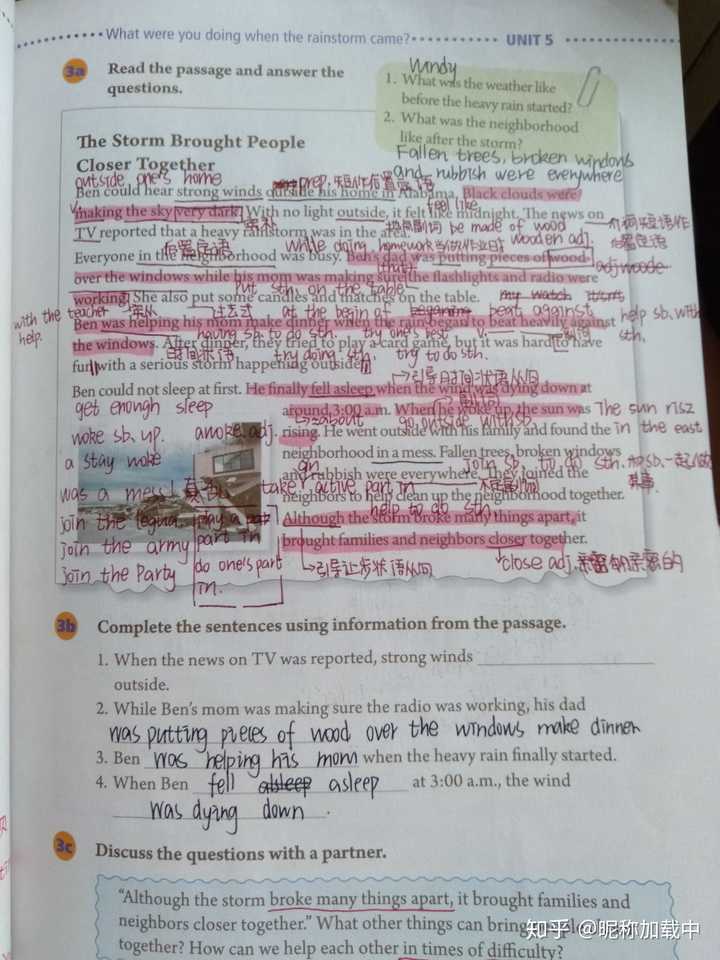 What were you doing when the rainstorm came?
UNIT 5
3a
Read the passage and answer the
questions.
windy
1. What was the weather like
before the heavy rain started?
2. What was the neighborhood
like after the storm?
Fallen trees, broken windows
and rubbish were everywhere
The Storm Brought People
Closer Together
outside one's home
prep.
Ben could hear strong winds outside his home in Alabama. Black clouds were
feel like
making the sky very dark. With no light outside, it felt like midnight. The news on
be made of wood
TV reported that a heavy rainstorm was in the area.
后置定语
while doing homework
wooden adj.
Everyone in the neighborhood was busy. Ben's dad was putting pieces of wood
over the windows while his mom was making sure the flashlights and radio were
put sth. on the table
working. She also put some candles and matches on the table.
with the teacher
help.
at the begin of
beat against
help sb. with
sth.
Ben was helping his mom make dinner when the rain began to beat heavily against
having sb to do sth.
try one's best
the windows. After dinner, they tried to play a card game, but it was hard to have
时间状语
try doing sth.
try to do sth.
fun with a serious storm happening outside.
引导时间状语从句
Ben could not sleep at first. He finally fell asleep when the wind was dying down at
get enough sleep
around 3:00 a.m. When he woke up, the sun was
about
go outside with sb
The sun
in the east
woke sb. up.
awoke. adj.
rising. He went outside with his family and found the
a stay woke
neighborhood in a mess. Fallen trees, broken windows
join sb to do sth.
and rubbish were everywhere. They joined the
was a mess!
take active part in
neighbors to help clean up the neighborhood together.
help to do sth.
join the
play a
Although the storm broke many things apart, it
join the army
part in
brought families and neighbors closer together.
join the Party
do one's part
in.
引导让步状语从句
close adj.
3b
Complete the sentences using information from the passage.
1. When the news on TV was reported, strong winds
outside.
2. While Ben's mom was making sure the radio was working, his dad
was putting pieces of wood over the windows make dinner
3. Ben was helping his mom when the heavy rain finally started.
4. When Ben fell asleep at 3:00 a.m., the wind
was dying down.
3c
Discuss the questions with a partner.
"Although the storm broke many things apart, it brought families and
neighbors closer together." What other things can bring
together? How can we help each other in times of difficulty?
知乎 @昵称加载中